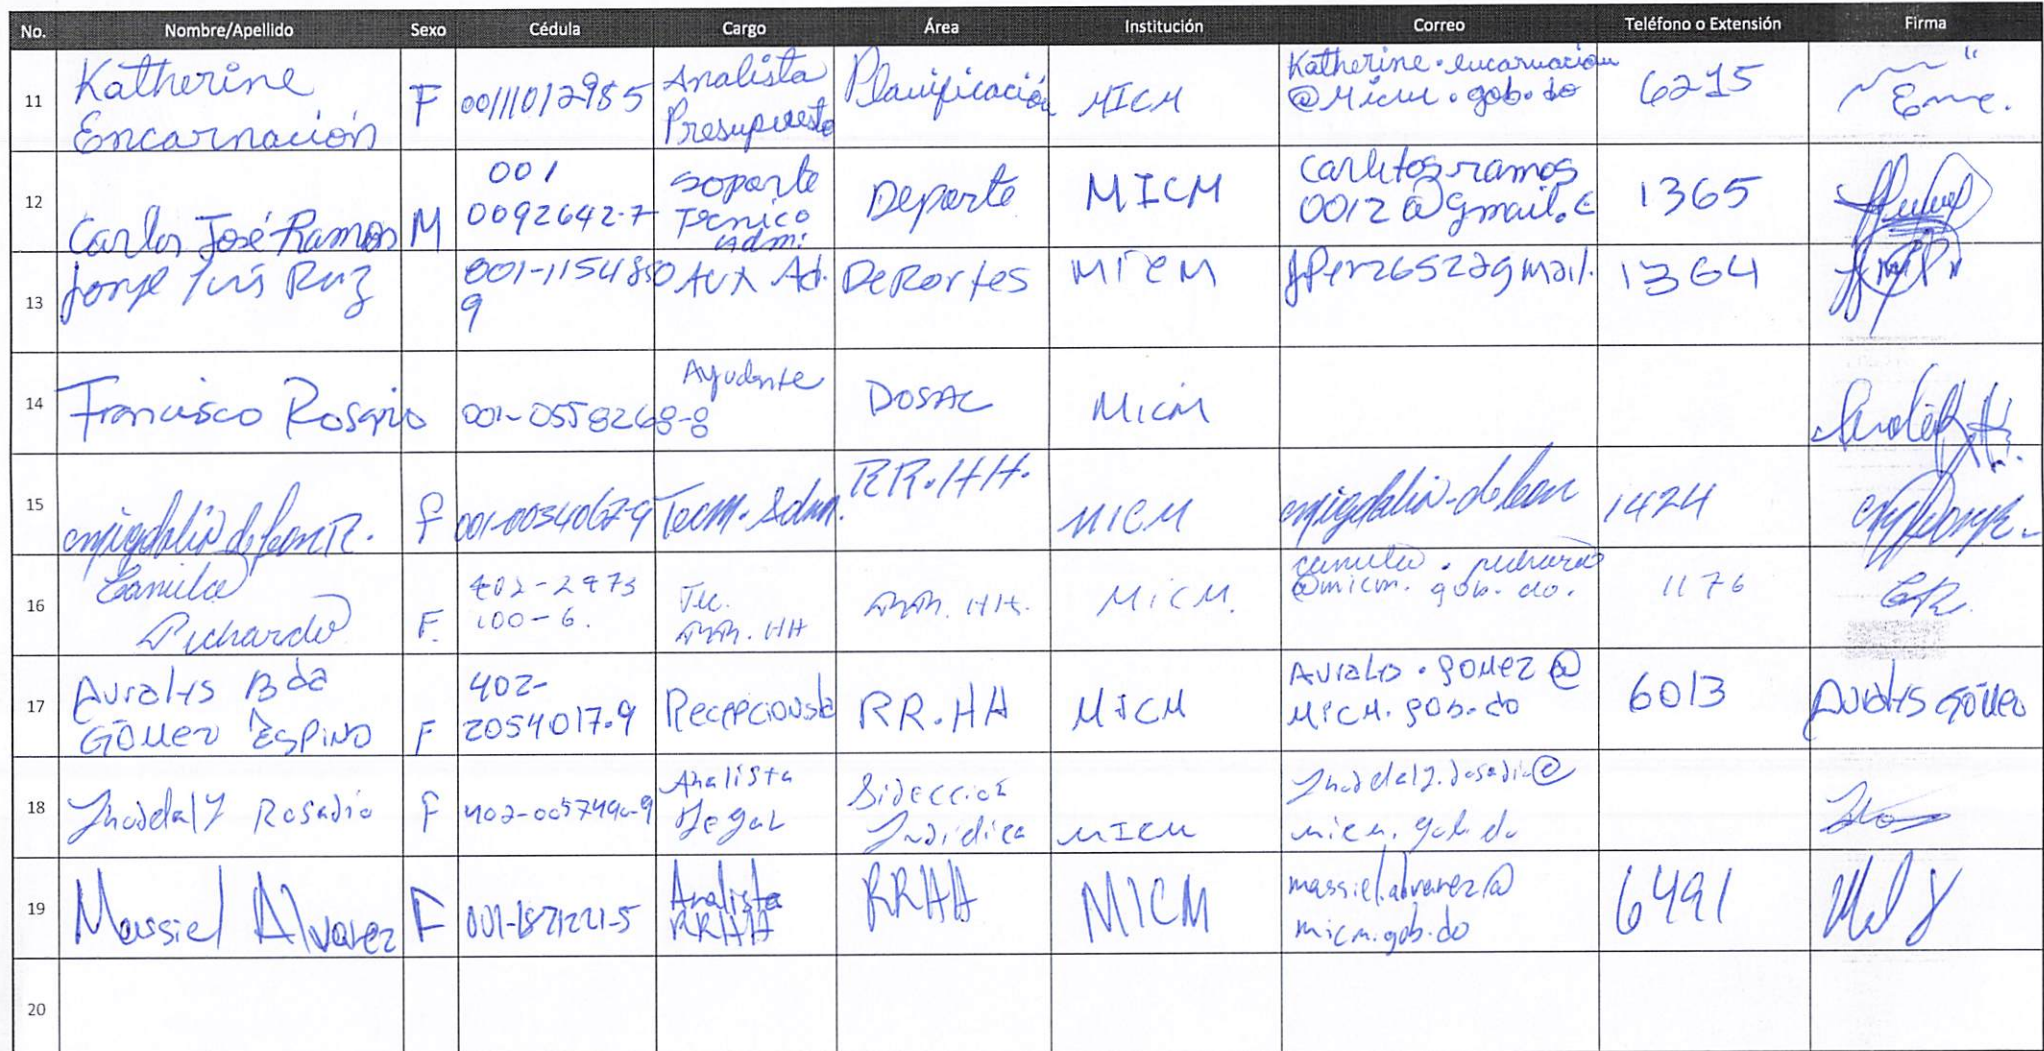 No. Nombre/Apellido Sexo Cédula Cargo Área Institución Correo Teléfono o Extensión Firma
11 Katherine Encarnación F 00111012985 Analista Presupuesto Planificación MICM Katherine.encarnacion@micm.gob.do 6215
12 Carlos José Ramos M 001 0092642-7 Soporte Tecnico Admi. Deporte MICM carlitosramos0012@gmail.c 1365
13 Jorge Luis Ruz 001-1154850 9 AUX Ad. DePortes MICM 1364
14 Francisco Rosario 001-0558268-8 Ayudante DOSAC MICM
15 migdalia de leon R. F 001-0034067-9 Tecn. Adm. RR.HH. MICM migdalia.deleon 1424
16 Camila Pichardo F. 402-2473 100-6. Tec. RR.HH RR.HH. MICM. camila.pichardo@micm.gob.do. 1176
17 Auralis B de Gómez Espino F 402-2054017-9 Recepcionista RR.HH MICM Auralis.gomez@micm.gob.do 6013 Auralis Gómez
18 Rosario F Analista Legal Jurídica MICM micm.gob.do
19 Massiel Alvarez F 001-1871221-5 Analista RRHH RRHH MICM massiel.alvarez@micm.gob.do 6491
20